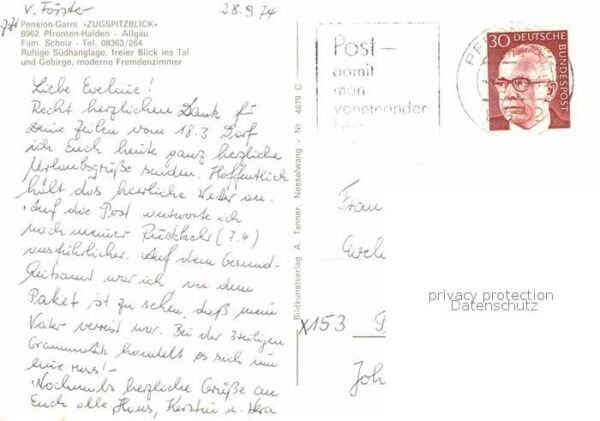 v. Förster 28.3.74
Pension-Garni »ZUGSPITZBLICK«
8962 Pfronten-Halden - Allgäu
Fam. Scholz - Tel. 08363/264
Ruhige Südhanglage, freier Blick ins Tal
und Gebirge, moderne Fremdenzimmer
Liebe
Recht herzlichen Dank für
Deine Zeilen vom 18.3. Darf
ich Euch heute ganz herzliche
Urlaubsgrüße senden. Hoffentlich
hält das herrliche Wetter an.
Auf die Post antworte ich
nach meiner Rückkehr (7.4)
ausführlicher. Auf dem Gesund-
heitsamt war ich, an dem
Paket ist zu sehen, daß mein
Vater verreist war. Bei der
Grammatik handelt es sich um
Nochmals herzliche Grüße an
Euch alle Hans, Kerstin u. Vera
Bildkunstverlag A. Tanner, Nesselwang - Nr. 4679 C
Post -
damit
man
voneinander
30 DEUTSCHE
BUNDESPOST
Frau
x153
Joh
privacy protection
Datenschutz